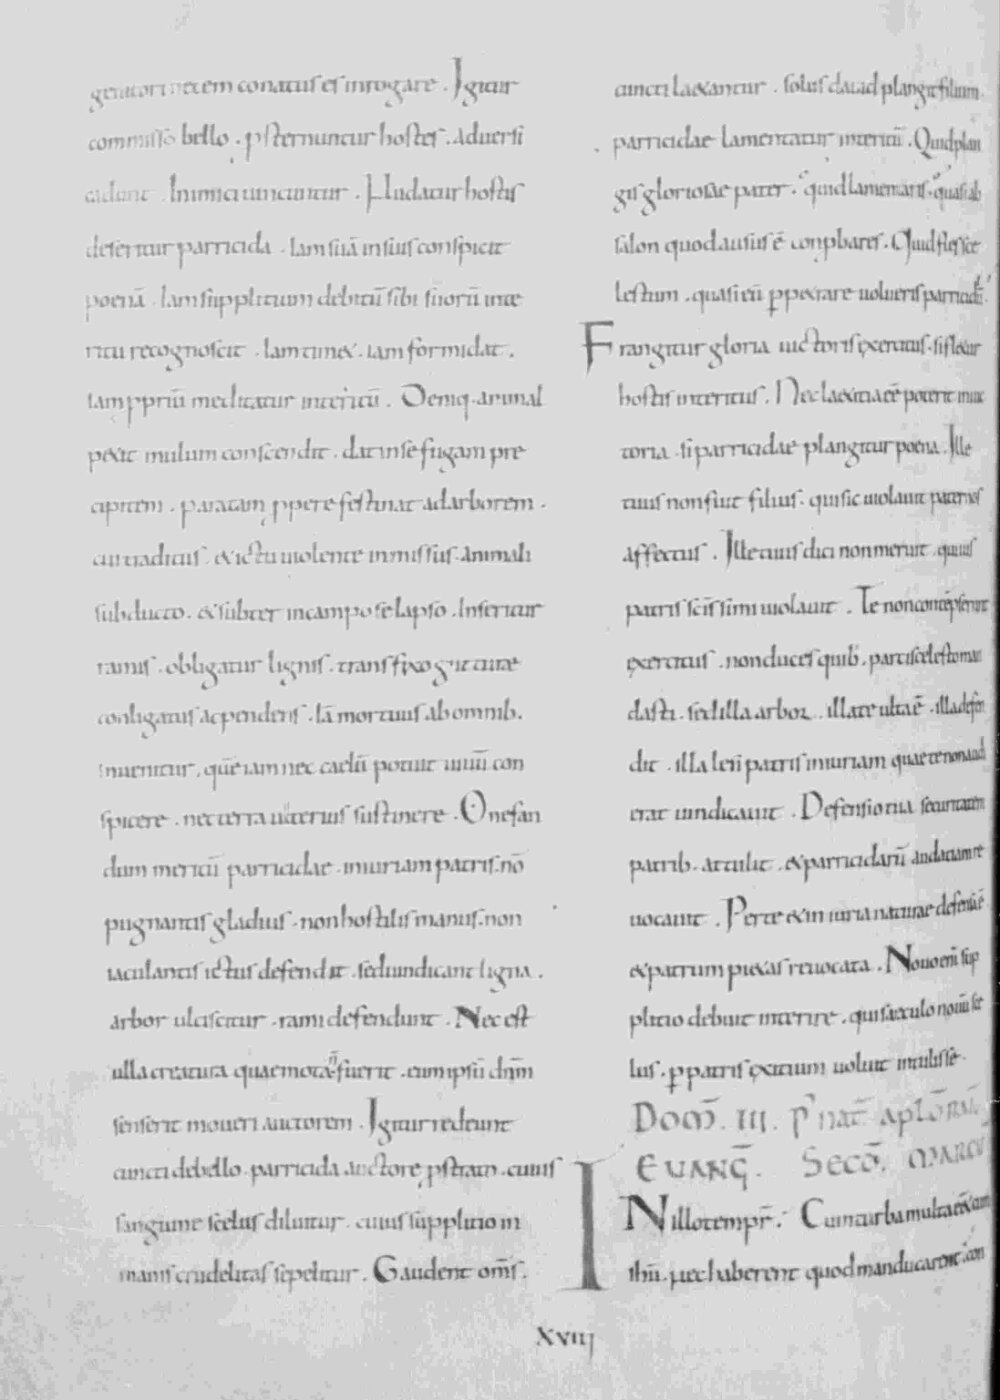 genitori necem conatus es inrogare . Igitur
commisso bello . p̱sternuntur hostes . aduersi
cadunt . Inimici uincuntur . Fludatur hostis
defertur parricida . Iam suā insius conspicit
poenā . Iam supplitium debitū sibi suorū inte
ritu recognoscit . Iam timet . iam formidat .
iam ppriū meditatur interitū . Deniq . animal
petit mulum conscendit . dat inse fugam pre
cipitem . paratam ppere festinat adarborem .
cui traditus . & ictu uiolente inmissus . animali
subducto . & subter incampo se lapso . Inseritur
ramis . obligatur lignis . transfixo gutture
conligatus ac pendens . Iā mortuus ab omnib .
inuenitur , quē iam nec caelū potuit uiuū con
spicere . nec terra ulterius sustinere . O nefan
dum meritū parricidae . iniuriam patris . nō
pugnantis gladius . non hostilis manus . non
iaculantis ictus defendit . sed uindicant ligna .
arbor ulciscitur . rami defendunt . Nec est
ulla creatura quae mota ñ fuerit . cum ipsū dn̄m
senserit moueri auctorem . Igitur redeunt
cuncti debello . parricida auctore pstrato . cuius
sanguine scelus diluitur . cuius supplitio in
manis crudelitas sepelitur . Gaudent om̄s .
cuncti laetantur . solus dauid plangit filium .
parricidae lamentatur interitū . Quid plan
gis gloriosae pater . quid lamentaris . quasi ab
salon quod ausus ē conpbares . Quid fles sce
lestum . quasi eū ppetrare uolueris parricidiū .
Frangitur gloria uictoris exercitus . si fletur
hostis interitus . Nec laetitia eē poterit in uic
toria . si parricidae plangitur poena . Ille
tuus non fuit filius . qui sic uiolauit paternos
affectus . Ille tuus dici non meruit . qui ius
patris scissimi uiolauit . Te non contēpserunt
exercitus . non duces quib . parci scelesto man
dasti . sed illa arbor . illa te ulta ē . illa defen
dit . illa lesi patris iniuriam quae te non aud
erat uindicauit . Defensio tua securitatem
patrib . attulit . & parricidarū audaciam re
uocauit . Per te & iniuria naturae defensa ē
& patrum pietas reuocata . Nouo enī sup
plitio debuit interire . qui saeculo nouū sce
lus . p patris exitium uoluit intulisse .
Dom̄ . III . p' nat̄ . apl̄orum
Euanḡ . Secd̄ . Marcū
In illo tempr̄ . Cum turba multa eēt cum
ihū . nec haberent quod manducarent . con
XVIIII